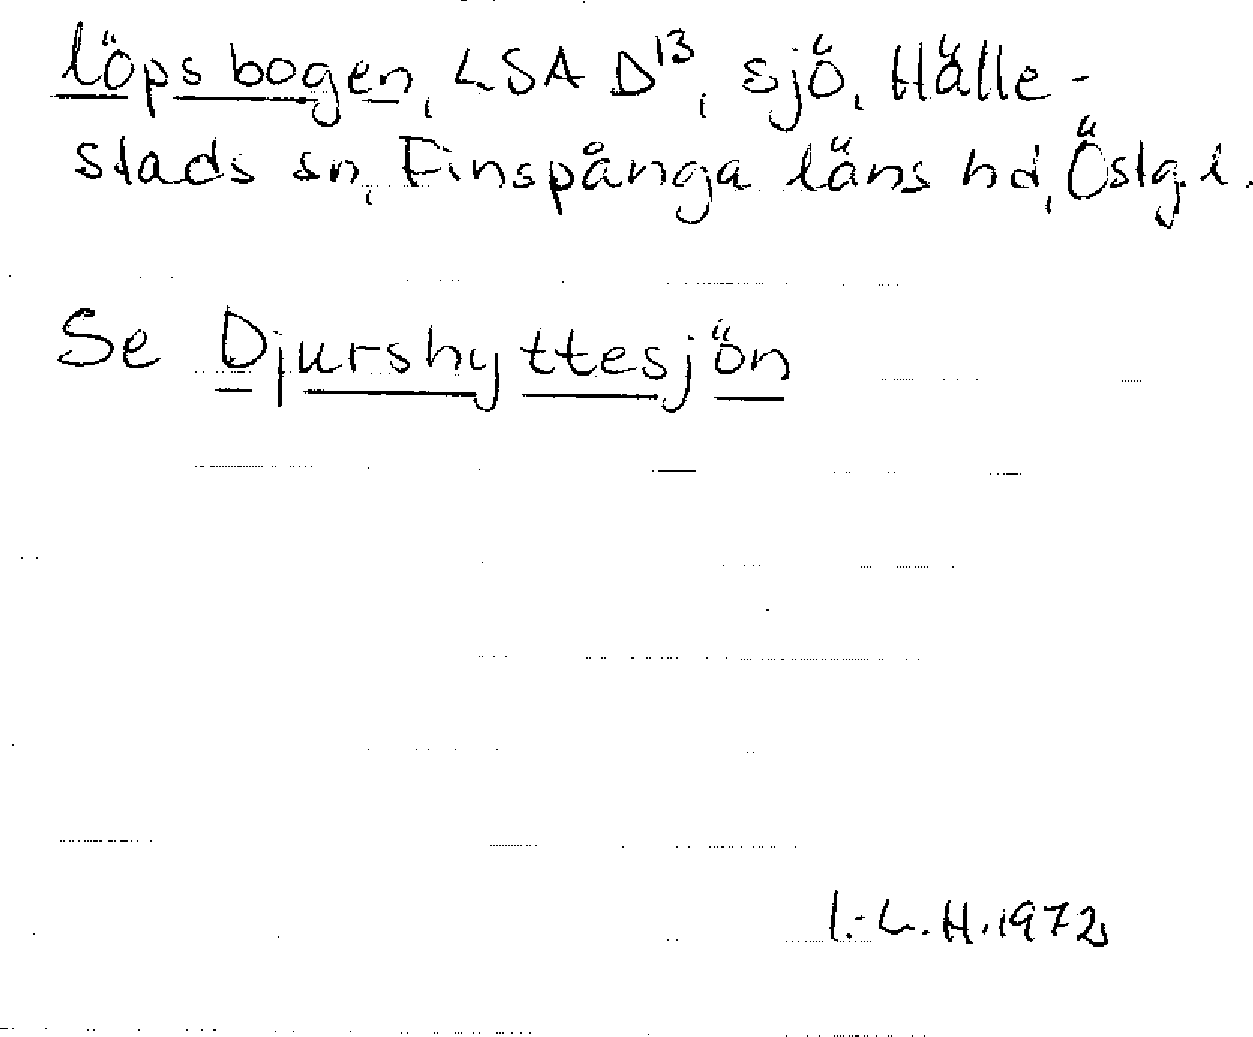 löpsbogen, LSA D13, sjö, Hälle-
stads sn, Finspånga läns hd, Östg. l.
Se Djurshyttesjön
I.-L. H. 1972